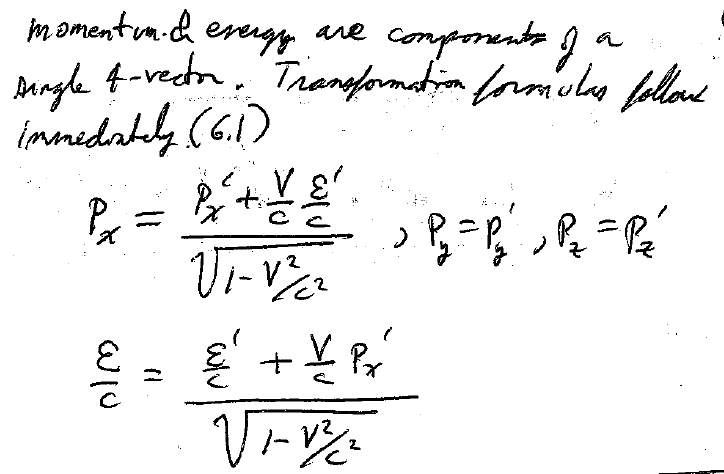 momentum & energy are components of a
single 4-vector. Transformation formulas follow
immediately (6.1)
Px = (Px' + V/c ε'/c) / √(1 - V²/c²) , Py = Py' , Pz = Pz'
ε/c = (ε'/c + V/c Px') / √(1 - V²/c²)